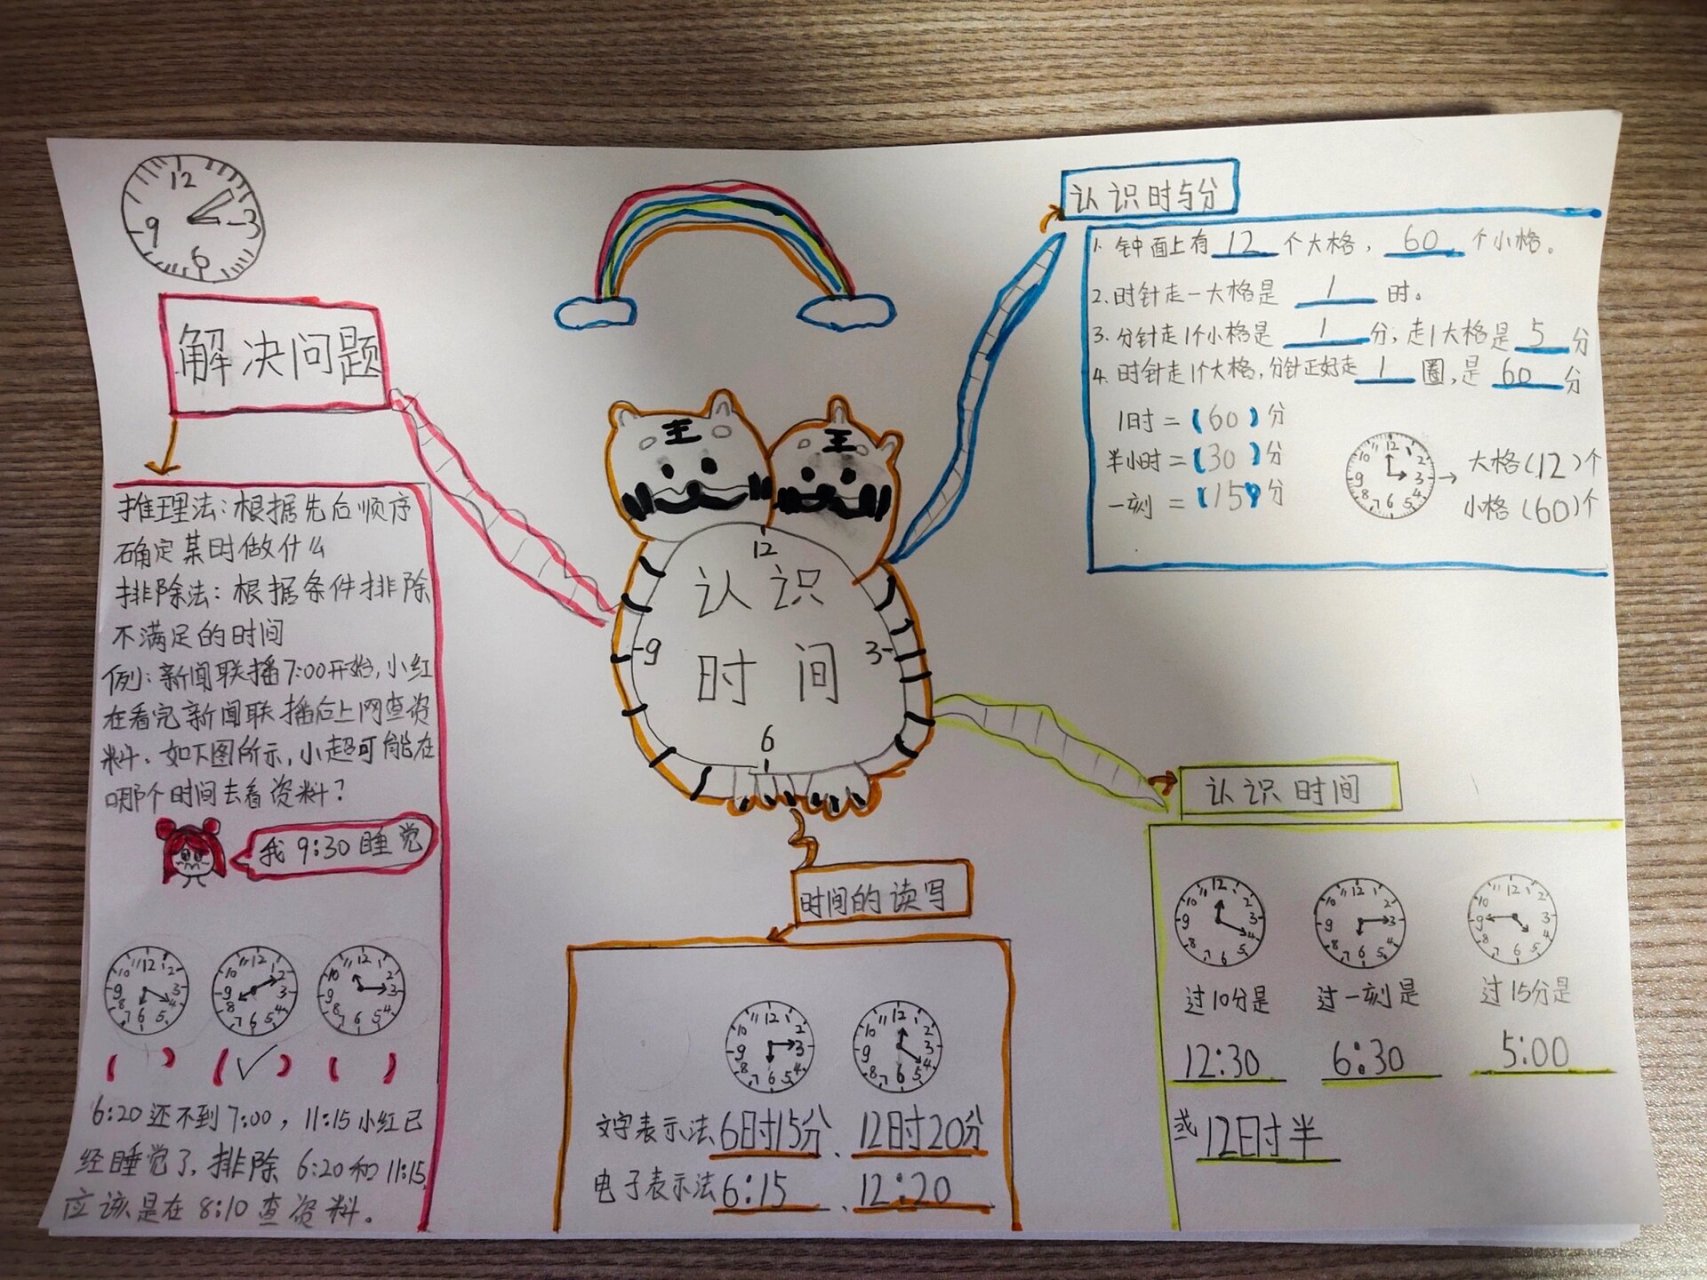 12
3
6
9
解决问题
推理法:根据先后顺序
确定某时做什么
排除法:根据条件排除
不满足的时间
例:新闻联播7:00开始,小红
在看完新闻联播后上网查资
料.如下图所示,小超可能在
哪个时间去看资料?
我9:30睡觉
( ) (✓) ( )
6:20还不到7:00,11:15小红已
经睡觉了,排除6:20和11:15,
应该是在8:10查资料。
王 王
12
认识
时间
9 3
6
认识时与分
1.钟面上有12个大格,60个小格。
2.时针走一大格是1时。
3.分针走1个小格是1分,走1大格是5分
4.时针走1个大格,分针正好走1圈,是60分
1时=(60)分
半小时=(30)分
一刻=(15)分
大格(12)个
小格(60)个
时间的读写
文字表示法6时15分、12时20分
电子表示法6:15、12:20
认识时间
过10分是 过一刻是 过15分是
12:30 6:30 5:00
或12时半